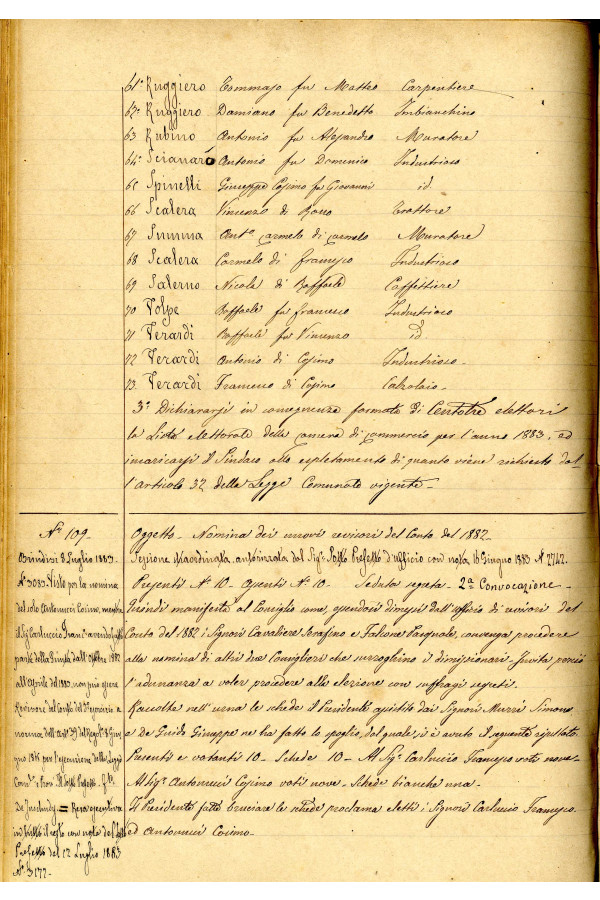 61º Ruggiero Tommaso fu Matteo Carpentiere
62º Ruggiero Damiano fu Benedetto Imbianchino
63 Rubino Antonio fu Alejandro Muratore
64º Scianarò Antonio fu Domenico Industrioso
65 Spinelli Giuseppe Cosimo fu Giovanni id
66 Scalera Vincenzo di Rocco Trattore
67 Summa Antº Carmelo di Carmelo Muratore
68 Scalera Carmelo di Francesco Industrioso
69 Salerno Nicola di Raffaele Caffettiere
70 Volpe Raffaele fu Francesco Industrioso
71 Verardi Raffaele fu Vincenzo id
72 Verardi Antonio di Cosimo Industrioso
73 Verardi Francesco di Cosimo Calzolaio
3º Dichiararsi in conseguenza formata di Centotre elettori
la Lista elettorale della Camera di Commercio per l'anno 1883, ed
incaricarsi il Sindaco allo espletamento di quanto viene richiesto dal
l'articolo 32 della Legge Comunale vigente
Nº 109
Brindisi 8 Luglio 1883
Nº 3083 Visto per la nomina
del solo Antonucci Cosimo, mentre
il Sig Carluccio Franco avendo fatto
parte della Giunta dall'Ottobre 1882
all'Aprile del 1883 non può essere
Revisore del Conto
norma dell'art 39 del Regolº 8 Giu
gno 1865 per l'esecuzione della Legge
Comle e Prov. Il Sotto Prefetto
= Reso esecutivo
in tutto il resto con nota del Sotto
Prefetto del 12 Luglio 1883
Nº 3177
Oggetto - Nomina dei nuovi revisori del Conto del 1882
Sessione straordinaria autorizzata dal Sigr Sotto Prefetto d'ufficio con nota 16 Giugno 1883 N. 2742.
Presenti Nº 10 - Assenti Nº 10 - Seduta segreta - 2ª Convocazione
Quindi manifesta al Consiglio come, essendosi dimessi dall'ufficio di revisori del
Conto del 1882 i Signori Cavaliere Serafino e Falcone Pasquale, convenga procedere
alla nomina di altri due Consiglieri che surroghino i dimissionari. Invita perciò
l'adunanza a voler procedere alla elezione con suffragi segreti.
Raccolte nell'urna le schede il Presidente assistito dai Signori Murri Simone
e De Guido Giuseppe ne ha fatto lo spoglio, dal quale si è avuto il seguente risultato.
Presenti e votanti 10 - Schede 10 - Al Sigr Carluccio Francesco voti nove
Al Sigr Antonucci Cosimo voti nove - Schede bianche una
Il Presidente fatte bruciare le schede proclama eletti i Signori Carluccio Francesco
ed Antonucci Cosimo